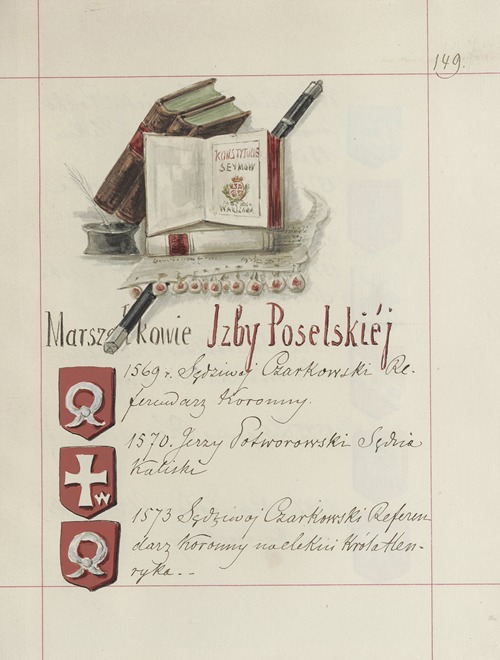 149.
KONSTYTUCJE
SEYMÓW
WARSZAWA
Marszałkowie Izby Poselskiéj
1569 r. Sędziwoj Czarkowski Re-
ferendarz Koronny.
1570. Jerzy Potworowski Sędzia
Kaliski
W
1573 Sędziwoj Czarkowski Referen
darz Koronny na elekcii Króla Hen-
ryka--